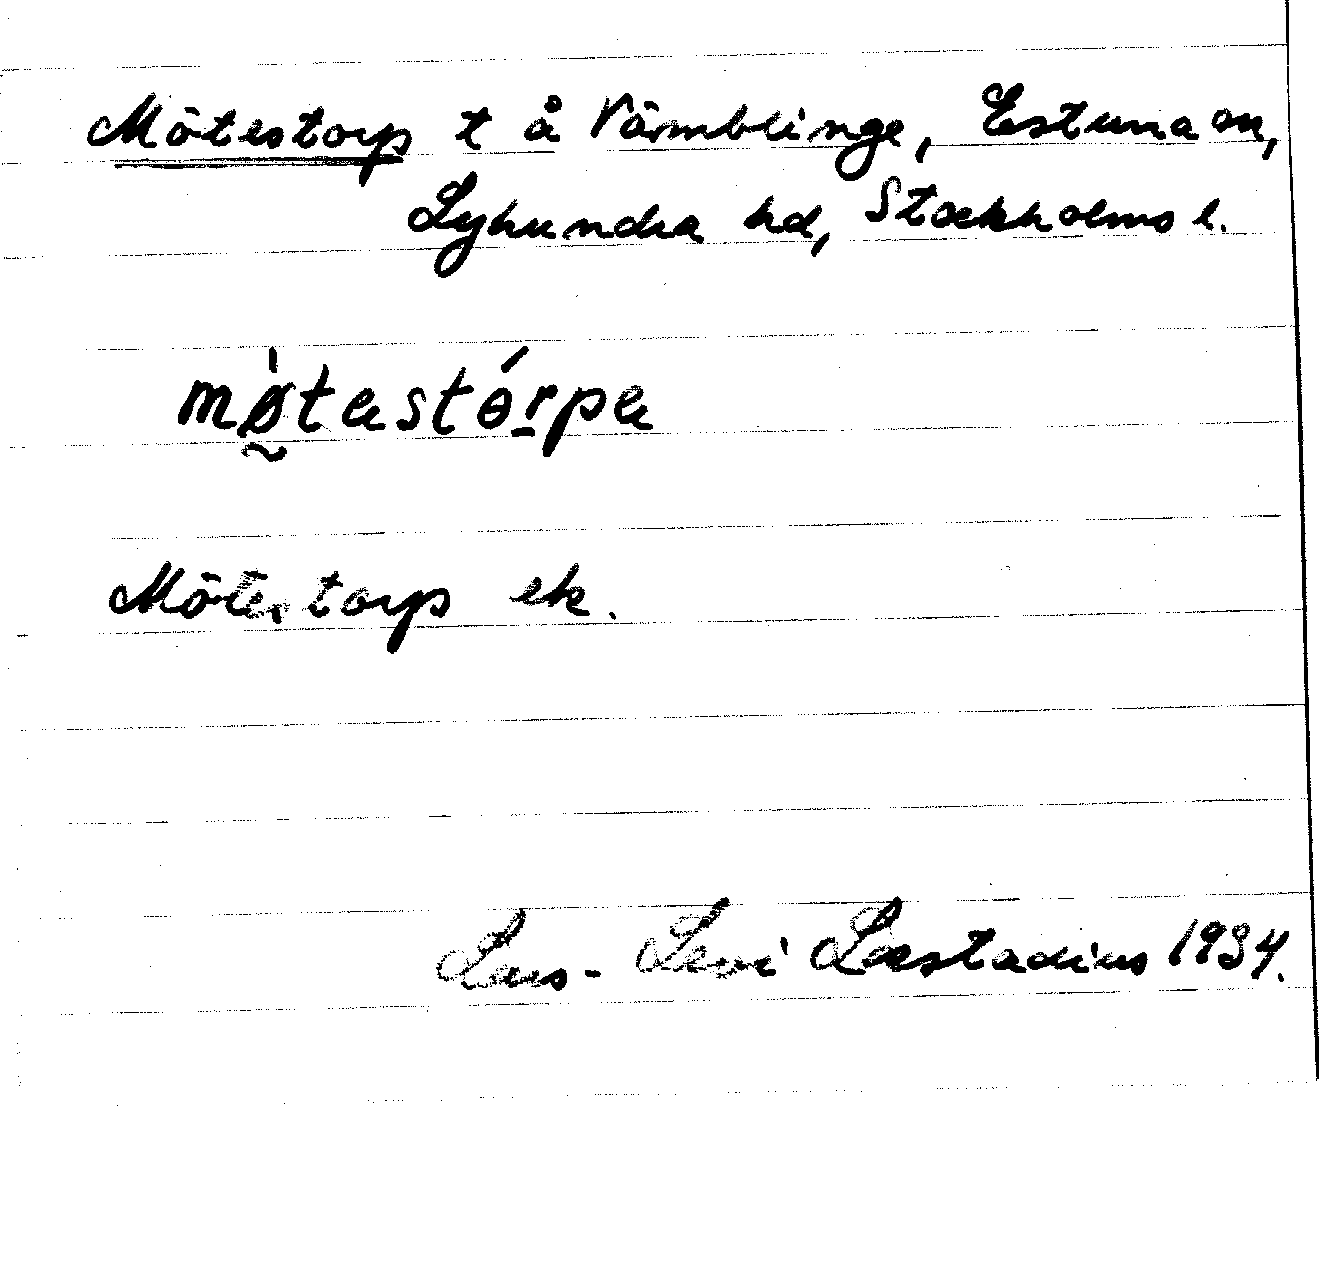 Mötestorp t å Värmblinge, Estuna sn,
Lyhundra hd, Stockholms l.
mø̀testɵ́rpe
Mötestorp ek.
Lars-Levi Læstadius 1934.